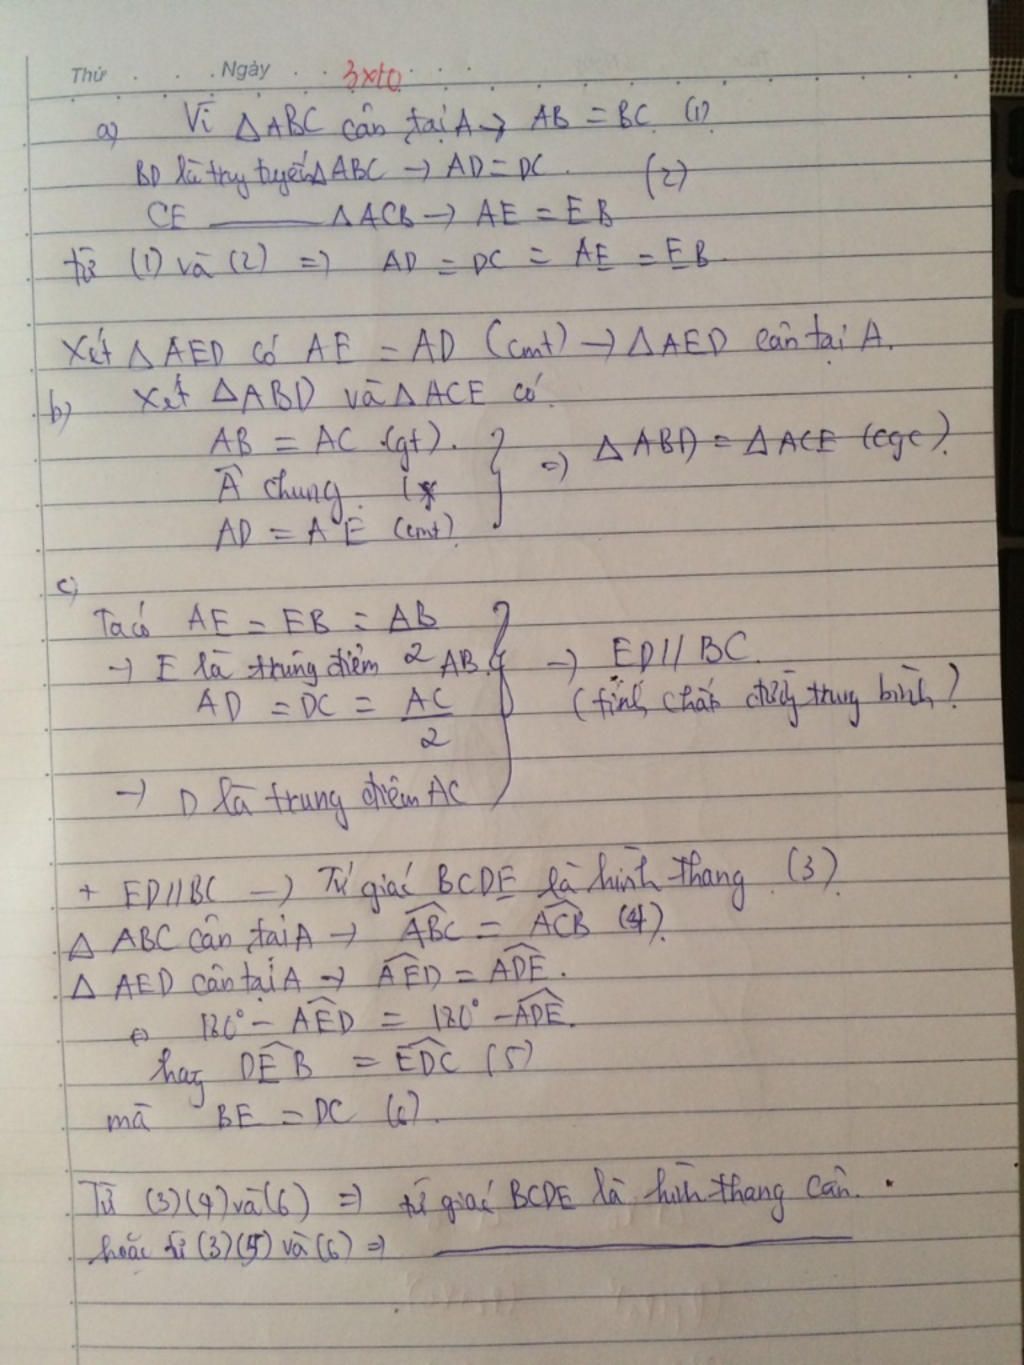 Thứ Ngày 3x10
a) Vì △ABC cân tại A → AB = BC (1)
BD là trug tuyến △ABC → AD = DC. (2)
CE ——— △ACB → AE = EB
từ (1) và (2) => AD = DC = AE = EB.
Xét △ AED có AE = AD (cmt) → △AED cân tại A.
b) Xét △ABD và △ACE có
AB = AC (gt).
Â chung
AD = AE (cmt)
=> △ABD = △ACE (cgc).
c)
Ta có AE = EB = AB/2
→ E là trung điểm AB.
AD = DC = AC/2
→ D là trung điểm AC
→ ED // BC.
(tính chất đường trung bình)
+ ED//BC → Tứ giác BCDE là hình thang (3)
△ ABC cân tại A → ABC^ = ACB^ (4)
△ AED cân tại A → AED^ = ADE^.
⇔ 180° - AED^ = 180° - ADE^.
hay DEB^ = EDC^ (5)
mà BE = DC (6).
Từ (3)(4) và (6) => tứ giác BCDE là hình thang cân.
hoặc từ (3)(5) và (6) => ———